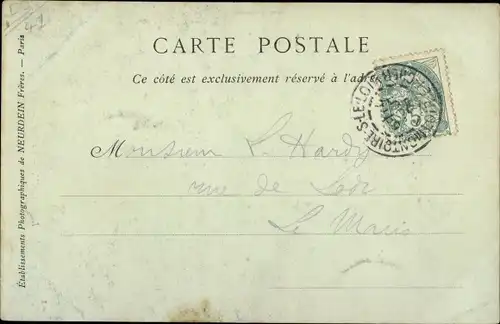 CARTE POSTALE
Ce côté est exclusivement réservé à l'adresse
MONTOIRE-S-LE-LOIR
Monsieur L. Hardy
rue de
Le Mans
Établissements Photographiques de NEURDEIN Frères. — Paris